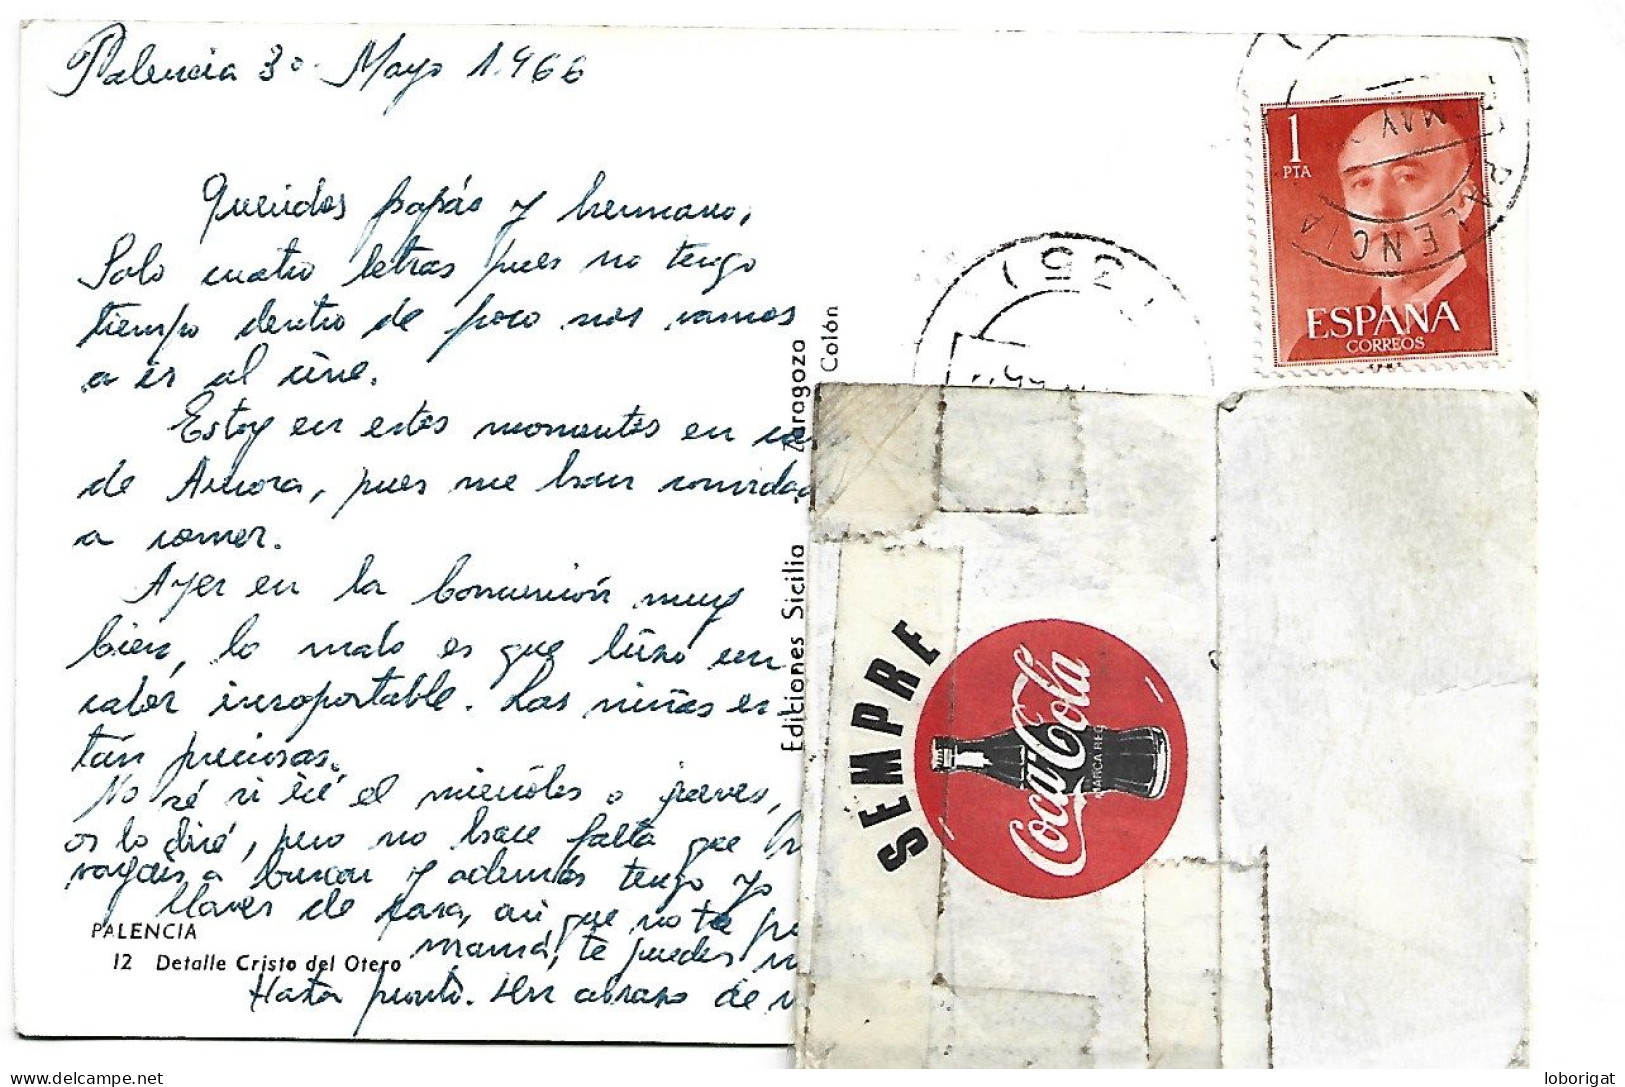 Palencia 30 Mayo 1.966
Queridos papás y hermano,
Solo cuatro letras pues no tengo
tiempo dentro de poco nos vamos
a ir al cine.
Estoy en estos momentos en ca
de Aurora, pues me han convidad
a comer.
Ayer en la Comunión muy
bien, lo malo es que hizo un
calor insoportable. Las niñas es
tán preciosas.
No sé si iré el miércoles o jueves,
os lo diré, pero no hace falta que
vayáis a buscar y además tengo yo
llaves de casa, así que no te
mamá, te puedes
Hasta pronto. Un abrazo de
PALENCIA
12 Detalle Cristo del Otero
Ediciones Sicilia
Zaragoza
Colón
1
PTA
ESPAÑA
CORREOS
PALENCIA
MAY
(35)
SEMPRE
Coca-Cola
MARCA REG
delcampe.net
loborigat